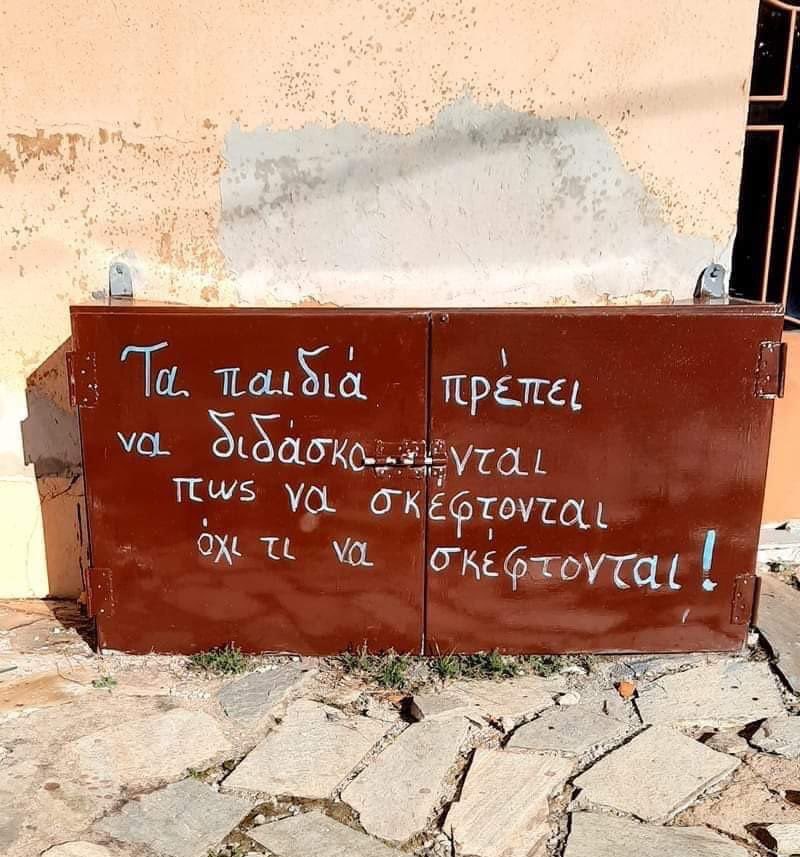 Τα παιδιά πρέπει
να διδάσκονται
πως να σκεφτονται
όχι τι να σκέφτονται!